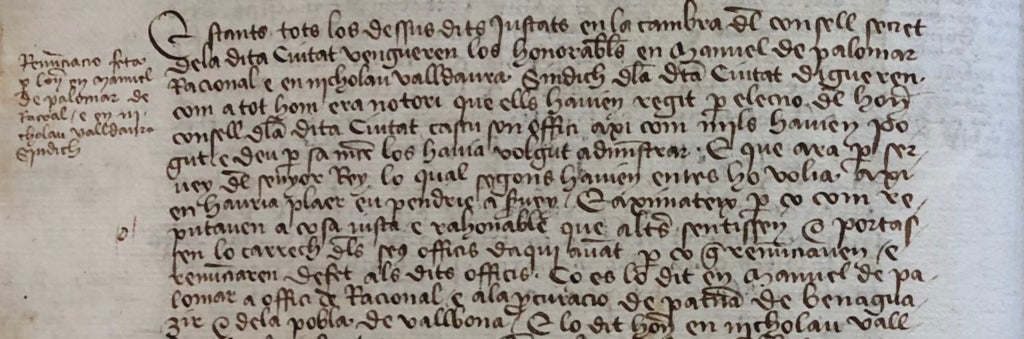 Renũciacio feta
p lon en manuel
de palomar de
Racõal / e en ni
cholau valldaura
Sindich
Estants tots los dessus dits Justats en la cambra dl consell secret
dela dita Ciutat vengueren los honorabls en Manuel de palomar
Racional e en nicholau valldaura Sindich dla dta Ciutat digueren
com a tot hom era notori que ells havien regit p eleccio dl hon
consell dla dita Ciutat cascu son offici axi com mils havien po
gut e deu p sa mce los havia volgut admistrar · E que ara p ser
vey dl senyor Rey lo qual segons havien entes ho volia axi
en hauria plaer eu pendrie a Servey E aximateix p ço com re
putaven a cosa justa e rahonable que altrs sentissen e portas
sen lo carrech dls seus officis daqui avãt p ço q renũciaven / e
renunciaren defet als dits officis · Ço es lo dit en Manuel de pa
lomar a offici de Racional / e ala pcuracio de patna de benagua
zir e dela pobla de vallbona / E lo dit hon en nicholau vall